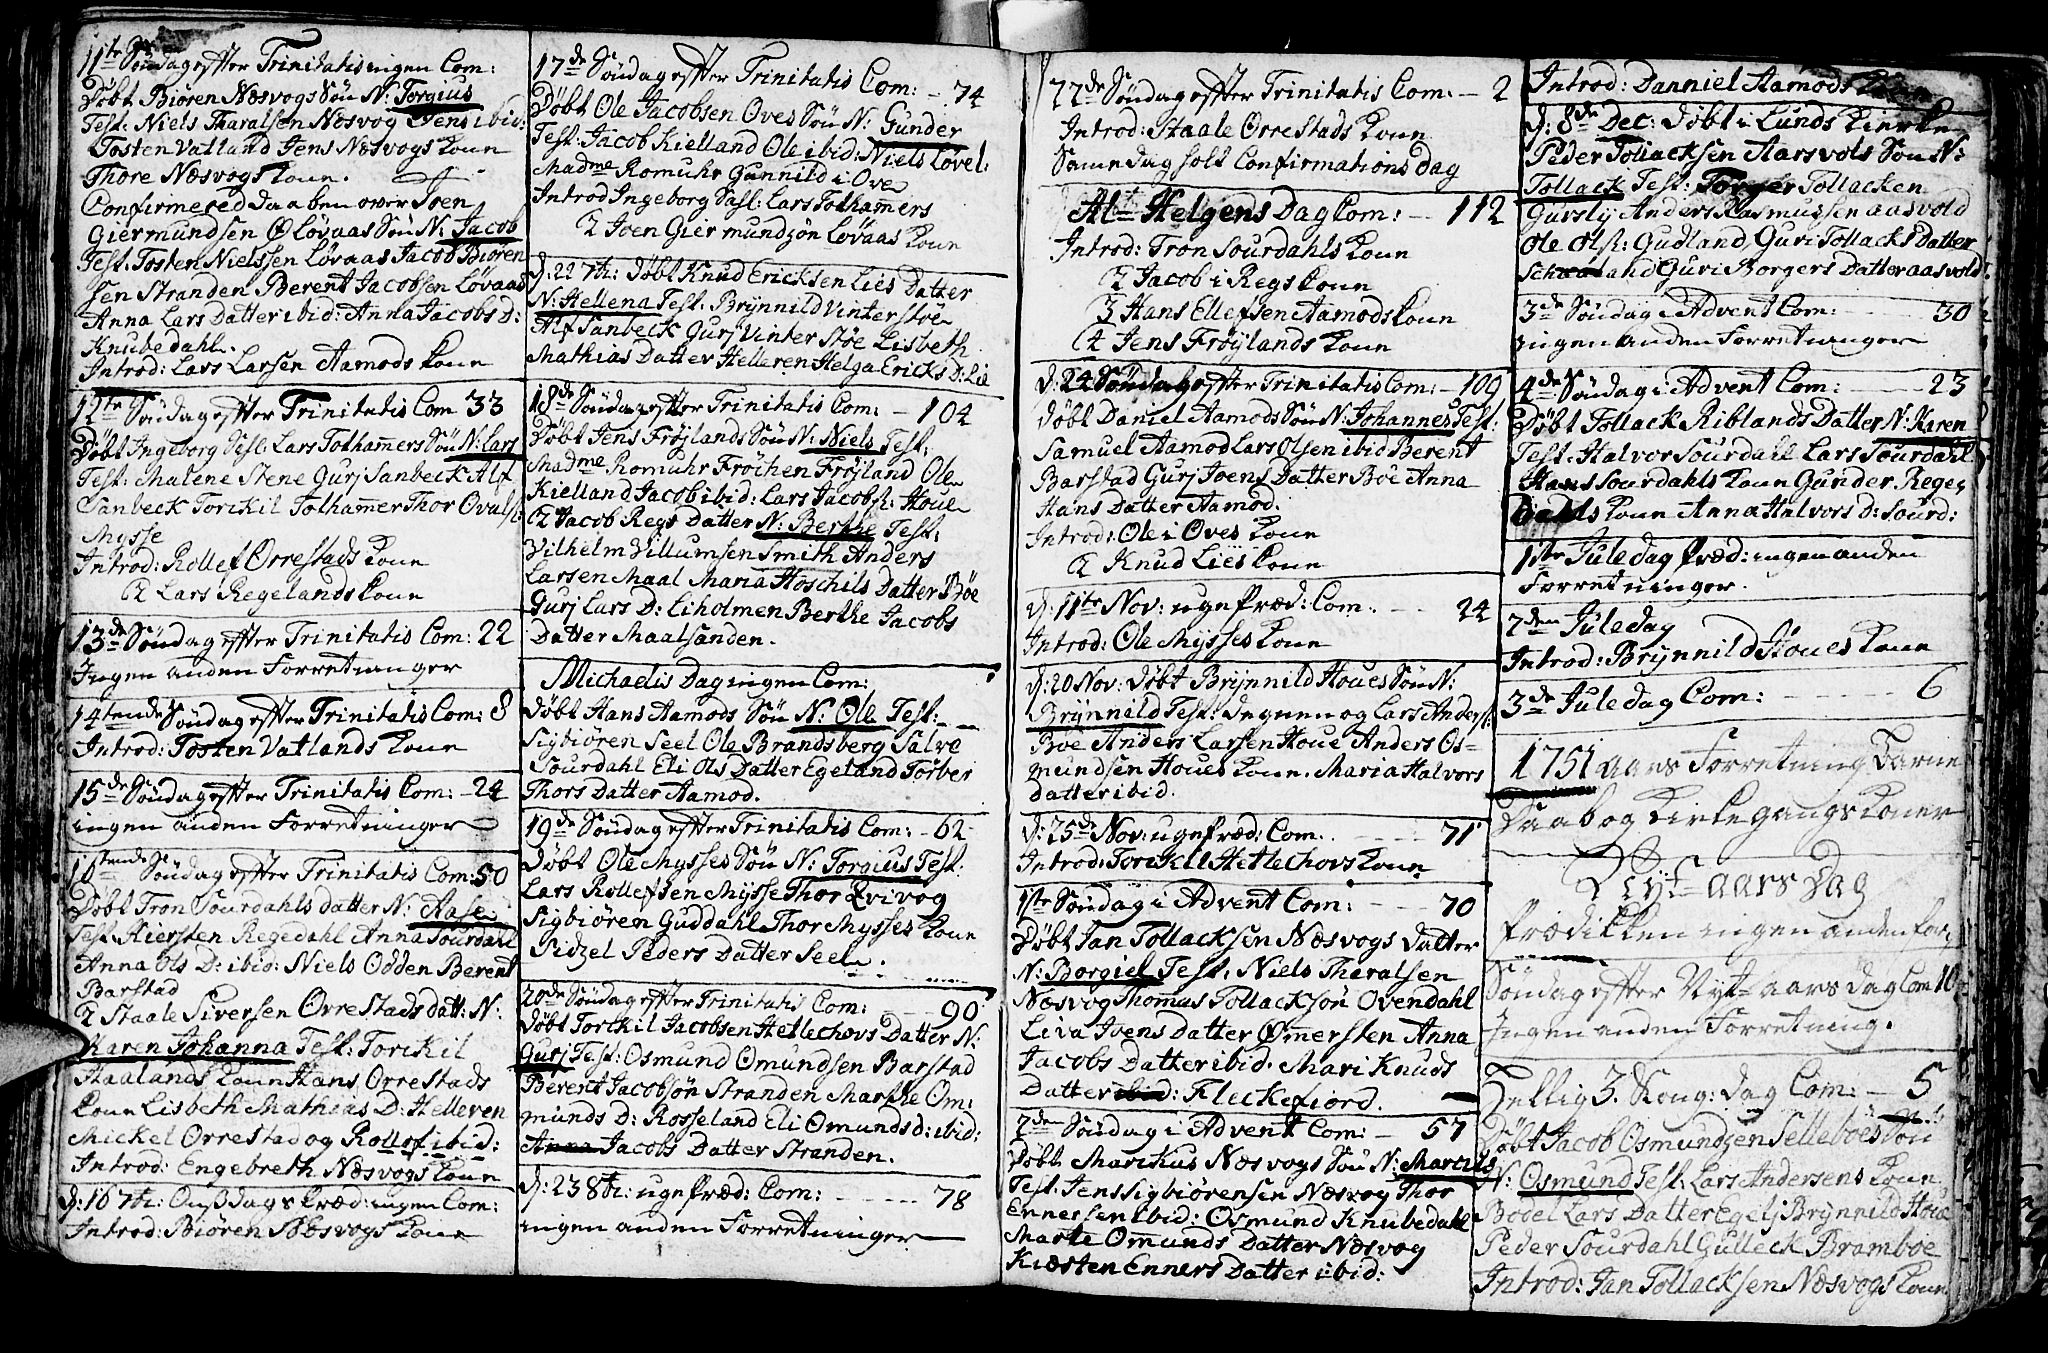 11te Søndag efter Trinitatis ingen Com:
Døbt Biøren Næsvogs Søn N: Torgius
Test: Niels Tharalsen Næsvog Jens ibid:
Tosten Vatland Jens Næsvogs Kone
Thore Næsvogs Kone.
Confirmered Daaben over Joen
Giermundsen Øløvaas Søn N: Jacob
Test: Tosten Nielssen Løvaas Jacob Biøren
sen Stranden Berent Jacobsen Løvaas
Anna Lars Datter ibid: Anna Jacobs D:
Knubedahl.
Introd: Lars Larsen Aamods Kone
12te Søndag efter Trinitatis Com 33
Døbt Ingeborg Sal: Lars Tothamers Søn N: Lars
Test: Malene Stene Gurj Sanbeck Alf
Sanbeck Torckil Tothamer Thor Ovals:
Mysse
Introd: Rollef Orrestads Kone
2 Lars Regelands Kone
13de Søndag efter Trinitatis Com: 22
Ingen anden Forretninger
14tende Søndag efter Trinitatis Com: 8
Introd: Tosten Vatlands Kone
15de Søndag efter Trinitatis Com: - 24
ingen anden Forretninger
16tende Søndag efter Trinitatis Com: 50
Døbt Tron Sourdahls datter N: Aase
Test: Kiersten Regedahl Anna Sourdahl
Anna Ols D: ibid: Niels Odden Berent
Barstad
2 Staale Siversen Orrestads datt: N:
Karen Johanna Test: Torckil
Haalands Kone Hans Orrestads
Kone Lisbeth Mathias D: Helleren
Mickel Orrestad og Rollof ibid:
Introd: Engebreth Næsvogs Kone
d: 16 7br: Onsdags Præd: ingen Com:
Introd: Biøren Næsvogs Kone
17de Søndag efter Trinitatis Com: - 74
Døbt Ole Jacobsen Oves Søn N: Gunder
Test: Jacob Kielland Ole ibid: Niels Løvel:
Madme Romuhr Gunnild i Ove
Introd Ingeborg Sal: Lars Tothamers
2 Joen Giermundsøn Løvaas Kone
d: 22 7br: Døbt Knud Ericksen Lies Datter
N: Hellena Test: Brynnild Vinterstøe
Alf Sanbeck Gurj Vinterstøe Lisbeth
Mathias Datter Helleren Helga Ericks D: Lie
18de Søndag efter Trinitatis Com: - 104
Døbt Jens Frøjlands Søn N: Niels Test:
Madme Romuhr Frøchen Frøjland Ole
Kielland Jacob ibid: Lars Jacobs: Houe
2 Jacob Regs Datter N: Berthe Test:
Vilhelm Villumsen Smith Anders
Larsen Maal Maria Hoschils Datter Bøe
Gurj Lars D: Liholmen Berthe Jacobs
Datter Maalsanden.
Michaelis Dag ingen Com:
Døbt Hans Aamods Søn N: Ole Test:
Sigbiøren Seel Ole Brandsberg Salve
Sourdahl Eli Ols Datter Egeland Torber
Thors Datter Aamod.
19de Søndag efter Trinitatis Com: - 62
Døbt Ole Mysses Søn N: Torgius Test:
Lars Rollefsen Mysse Thor Qvivog
Sigbiøren Guddahl Thor Mysses Kone
Sidzel Peders Datter Seel.
20de Søndag efter Trinitatis Com: 90
Døbt Torckil Jacobsen Hetlechovs Datter N:
Gurj Test: Osmund Omundsen Barstad
Berent Jacobsøn Stranden Marthe Om:
munds D: Rosseland Eli Omunds D: ibid:
Anna Jacobs Datter Stranden.
d: 23 8br: ugepræd: Com: - - - 78
ingen anden Forretninger
22de Søndag efter Trinitatis Com: - 2
Introd: Staale Orrestads Kone
Same dag holt Confirmations Dag
Alt Helgens Dag Com: - 112
Introd: Tron Sourdahls Kone
2 Jacob i Regs Kone
3 Hans Ellefsen Aamods Kone
4 Jens Frøylands Kone
d: 24 Søndag efter Trinitatis Com: - 109
Døbt Daniel Aamods Søn N: Johannes Test:
Samuel Aamod Lars Olsen ibid Berent
Barstad Gurj Joens Datter Bøe Anna
Hans Datter Aamod.
Introd: Ole i Oves Kone
2 Knud Lies Kone
d: 11te Nov: ugepræd: Com: 24
Introd: Ole Mysses Kone
d: 20 Nov: Døbt Brynnild Houes Søn N:
Brynnild Test: Degnen og Lars Anders:
Bøe Anders Larsen Houe Anders Os=
mundsen Houes Kone. Maria Halvors
datter ibid.
d: 25de Nov: ugepræd: Com. 71
Introd: Torckil Hetlechovs Kone
1ste Søndag i Advent Com: - - 70
Døbt Jan Tollacksen Næsvogs Datter
N: Borgiel Test: Niels Tharalsen
Næsvog Thomas Tollacksøn Ovendahl
Liva Ivens Datter Omersten Anna
Jacobs Datter ibid. Mari Knuds
Datter ibid: Fleckefiord.
2den Søndag i Advent Com: - 57
Døbt Marckus Næsvogs Søn N: Marcus
Test: Jens Sigbiørensen Næsvog Thor
Ennersen ibid: Osmund Knubedahl
Marte Omunds Datter Næsvog
Kiæsten Enners Datter ibid:
Introd: Danniel Aamods Kone
d: 8de Dec: Døbt i Lunds Kierke
Peder Tollacksen Aarsvols Søn N:
Tollack Test: Torger Tollacken
Gursly Anders Rasmussen aasvold
Ole Ols: Gudland, Guri Tollacks Datter
land Guri Borgers Datter aasvold
3de Søndag i Advent Com: 30
ingen anden Forretninger
4de Søndag i Advent Com: 23
Døbt Tollack Riblands Datter N: Karen
Test: Halvor Sourdahl Lars Sourdahl
Hans Sourdahls Kone Gunder Rege,
Dahls Kone Anna Halvors D: Sourd:
1ste Juledag præd: ingen anden
Forretninger.
2den Juledag
Introd: Brynnild Houes Kone
3de Juledag Com: - - - - 6
1751 aars Forretning Barne
Daab og Kirkegangs Koner
Nyt aars Dag
Prædicken ingen anden for,
Søndag efter Nyt aars dag Com 10
Ingen anden Forretning.
Hellig 3. Kong: Dag Com: - 5
Døbt Jacob Osmundzen Selleboes Søn
N: Osmund Test: Lars Andersens Kone
Bodel Lars Datter Egelj Brynnild Houe
Peder Sourdahl Gulleck Bramboe
Introd: Jan Tollacksen Næsvogs Kone